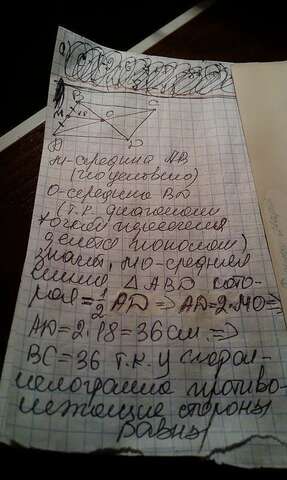 B
C
M
18
O
A
D
M-середина AB
(по условию)
O-середина BD
(т.к. диагонали
точкой пересечения
делятся пополам)
значит, MO-средняя
линия △ABD кото-
рая = 1/2 AD ⇒ AD=2·MO⇒
AD=2·18=36см.⇒
BC=36 т.к. у
противо-
лежащие стороны
равны